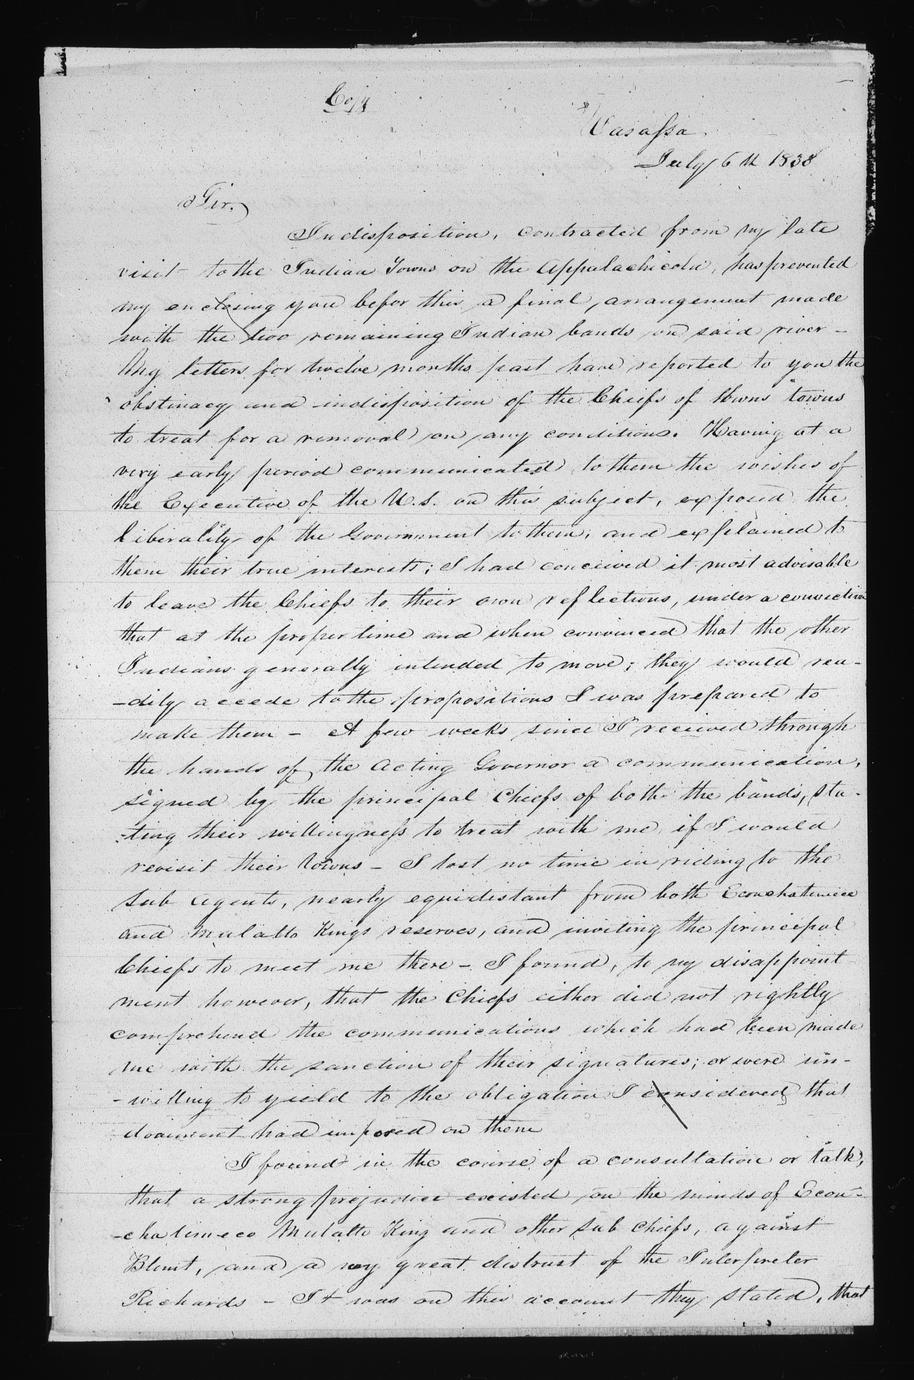 Copy
Wasassa
July 6th 1838
Sir,
Indisposition, contracted from my late
visit to the Indian Towns on the Appalachicola, has prevented
my enclosing you befor this, a final arrangement made
with the two remaining Indian bands on said river -
My letters for twelve months past have reported to you the
obstinacy and indisposition of the Chiefs of thowns towns
to treat for a removal on any conditions. Having at a
very early period communicated to them the wishes of
the Executive of the U.S. on this subject, exposed the
liberality of the Government to them, and explained to
them their true interests; I had conceived it most advisable
to leave the Chiefs to their own reflections, under a conviction
that at the proper time and when convinced that the other
Indians generally intended to move; they would rea-
-dily accede to the propositions I was prepared to
make them - A few weeks since I received through
the hands of the Acting Governor a communication,
signed by the principal Chiefs of both the bands, sta-
-ting their willingness to treat with me, if I would
revisit their Towns - I lost no time in riding to the
Sub Agents, nearly equidistant from both Econchatimico
and Mulatto Kings reserves, and inviting the principal
Chiefs to meet me there - I found, to my disappoint
ment however, that the Chiefs either did not rightly
comprehend the communications which had been made
me with the sanction of their signatures; or were un-
-willing to yield to the obligation I considered, that
document had imposed on them
I found in the course of a consultation or talk,
that a strong prejudice existed on the minds of Econ-
-chatimeco Mulatto King and other sub chiefs, against
Blunt, and a very great distrust of the Interpreter
Richards - It was on this account they stated, that